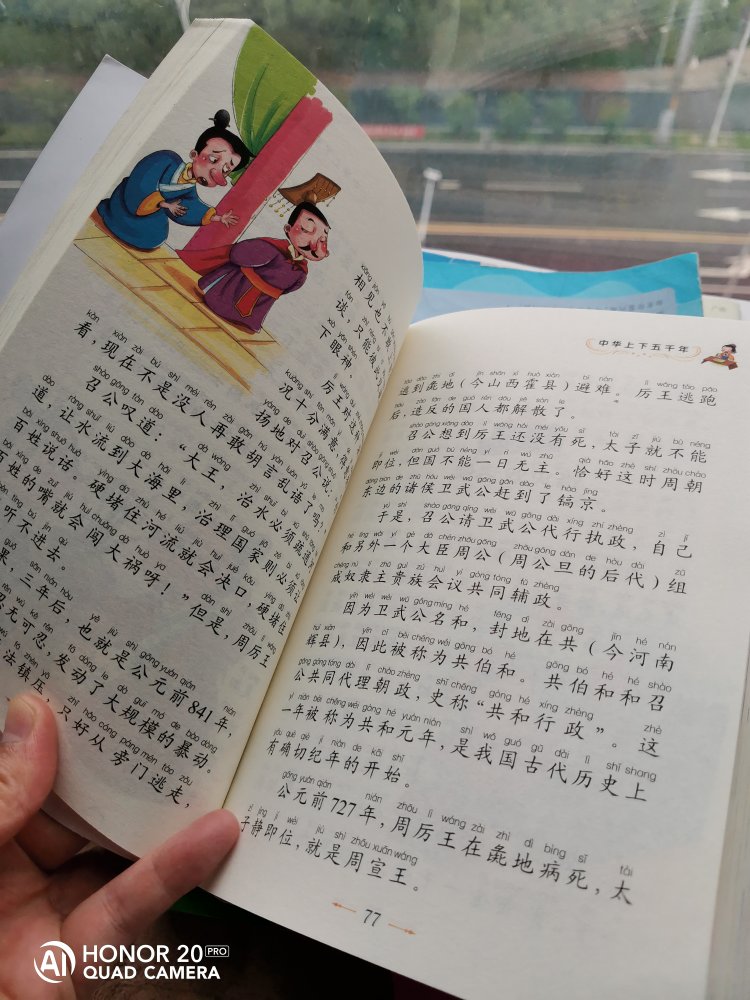 相见也不敢交
谈，只能彼此丢
下眼神。
厉王对这种
况十分满意，得意
扬地对召公说：
看，现在不是没人再敢胡言乱语了吗？
召公叹道：“大王，治水必须疏通河
道，让水流到大海里，治理国家则必须让
百姓说话。硬堵住河流就会决口，硬堵住
百姓的嘴就会闯大祸呀！”但是，周厉王
听不进去。
果，三年后，也就是公元前841年，
忍无可忍，发动了大规模的暴动。
法镇压，只好从旁门逃走，
中华上下五千年
逃到彘地（今山西霍县）避难。厉王逃跑
后，造反的国人都解散了。
召公想到厉王还没有死，太子就不能
即位，但国不能一日无主。恰好这时周朝
东边的诸侯卫武公赶到了镐京。
于是，召公请卫武公代行执政，自己
和另外一个大臣周公（周公旦的后代）组
成奴隶主贵族会议共同辅政。
因为卫武公名和，封地在共（今河南
辉县），因此被称为共伯和。共伯和和召
公共同代理朝政，史称“共和行政”。这
一年被称为共和元年，是我国古代历史上
有确切纪年的开始。
公元前727年，周厉王在彘地病死，太
子静即位，就是周宣王。
77
AI HONOR 20 PRO
QUAD CAMERA